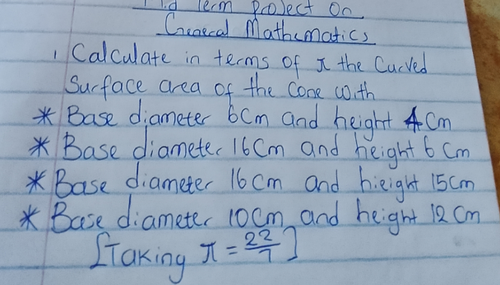 Term Project On
General Mathematics
1 Calculate in terms of π the Curved
Surface area of the Cone with
* Base diameter 6cm and height 4cm
* Base diameter 16cm and height 6cm
* Base diameter 16cm and hieight 15cm
* Base diameter 10cm and height 12cm
[Taking π = 22/7]